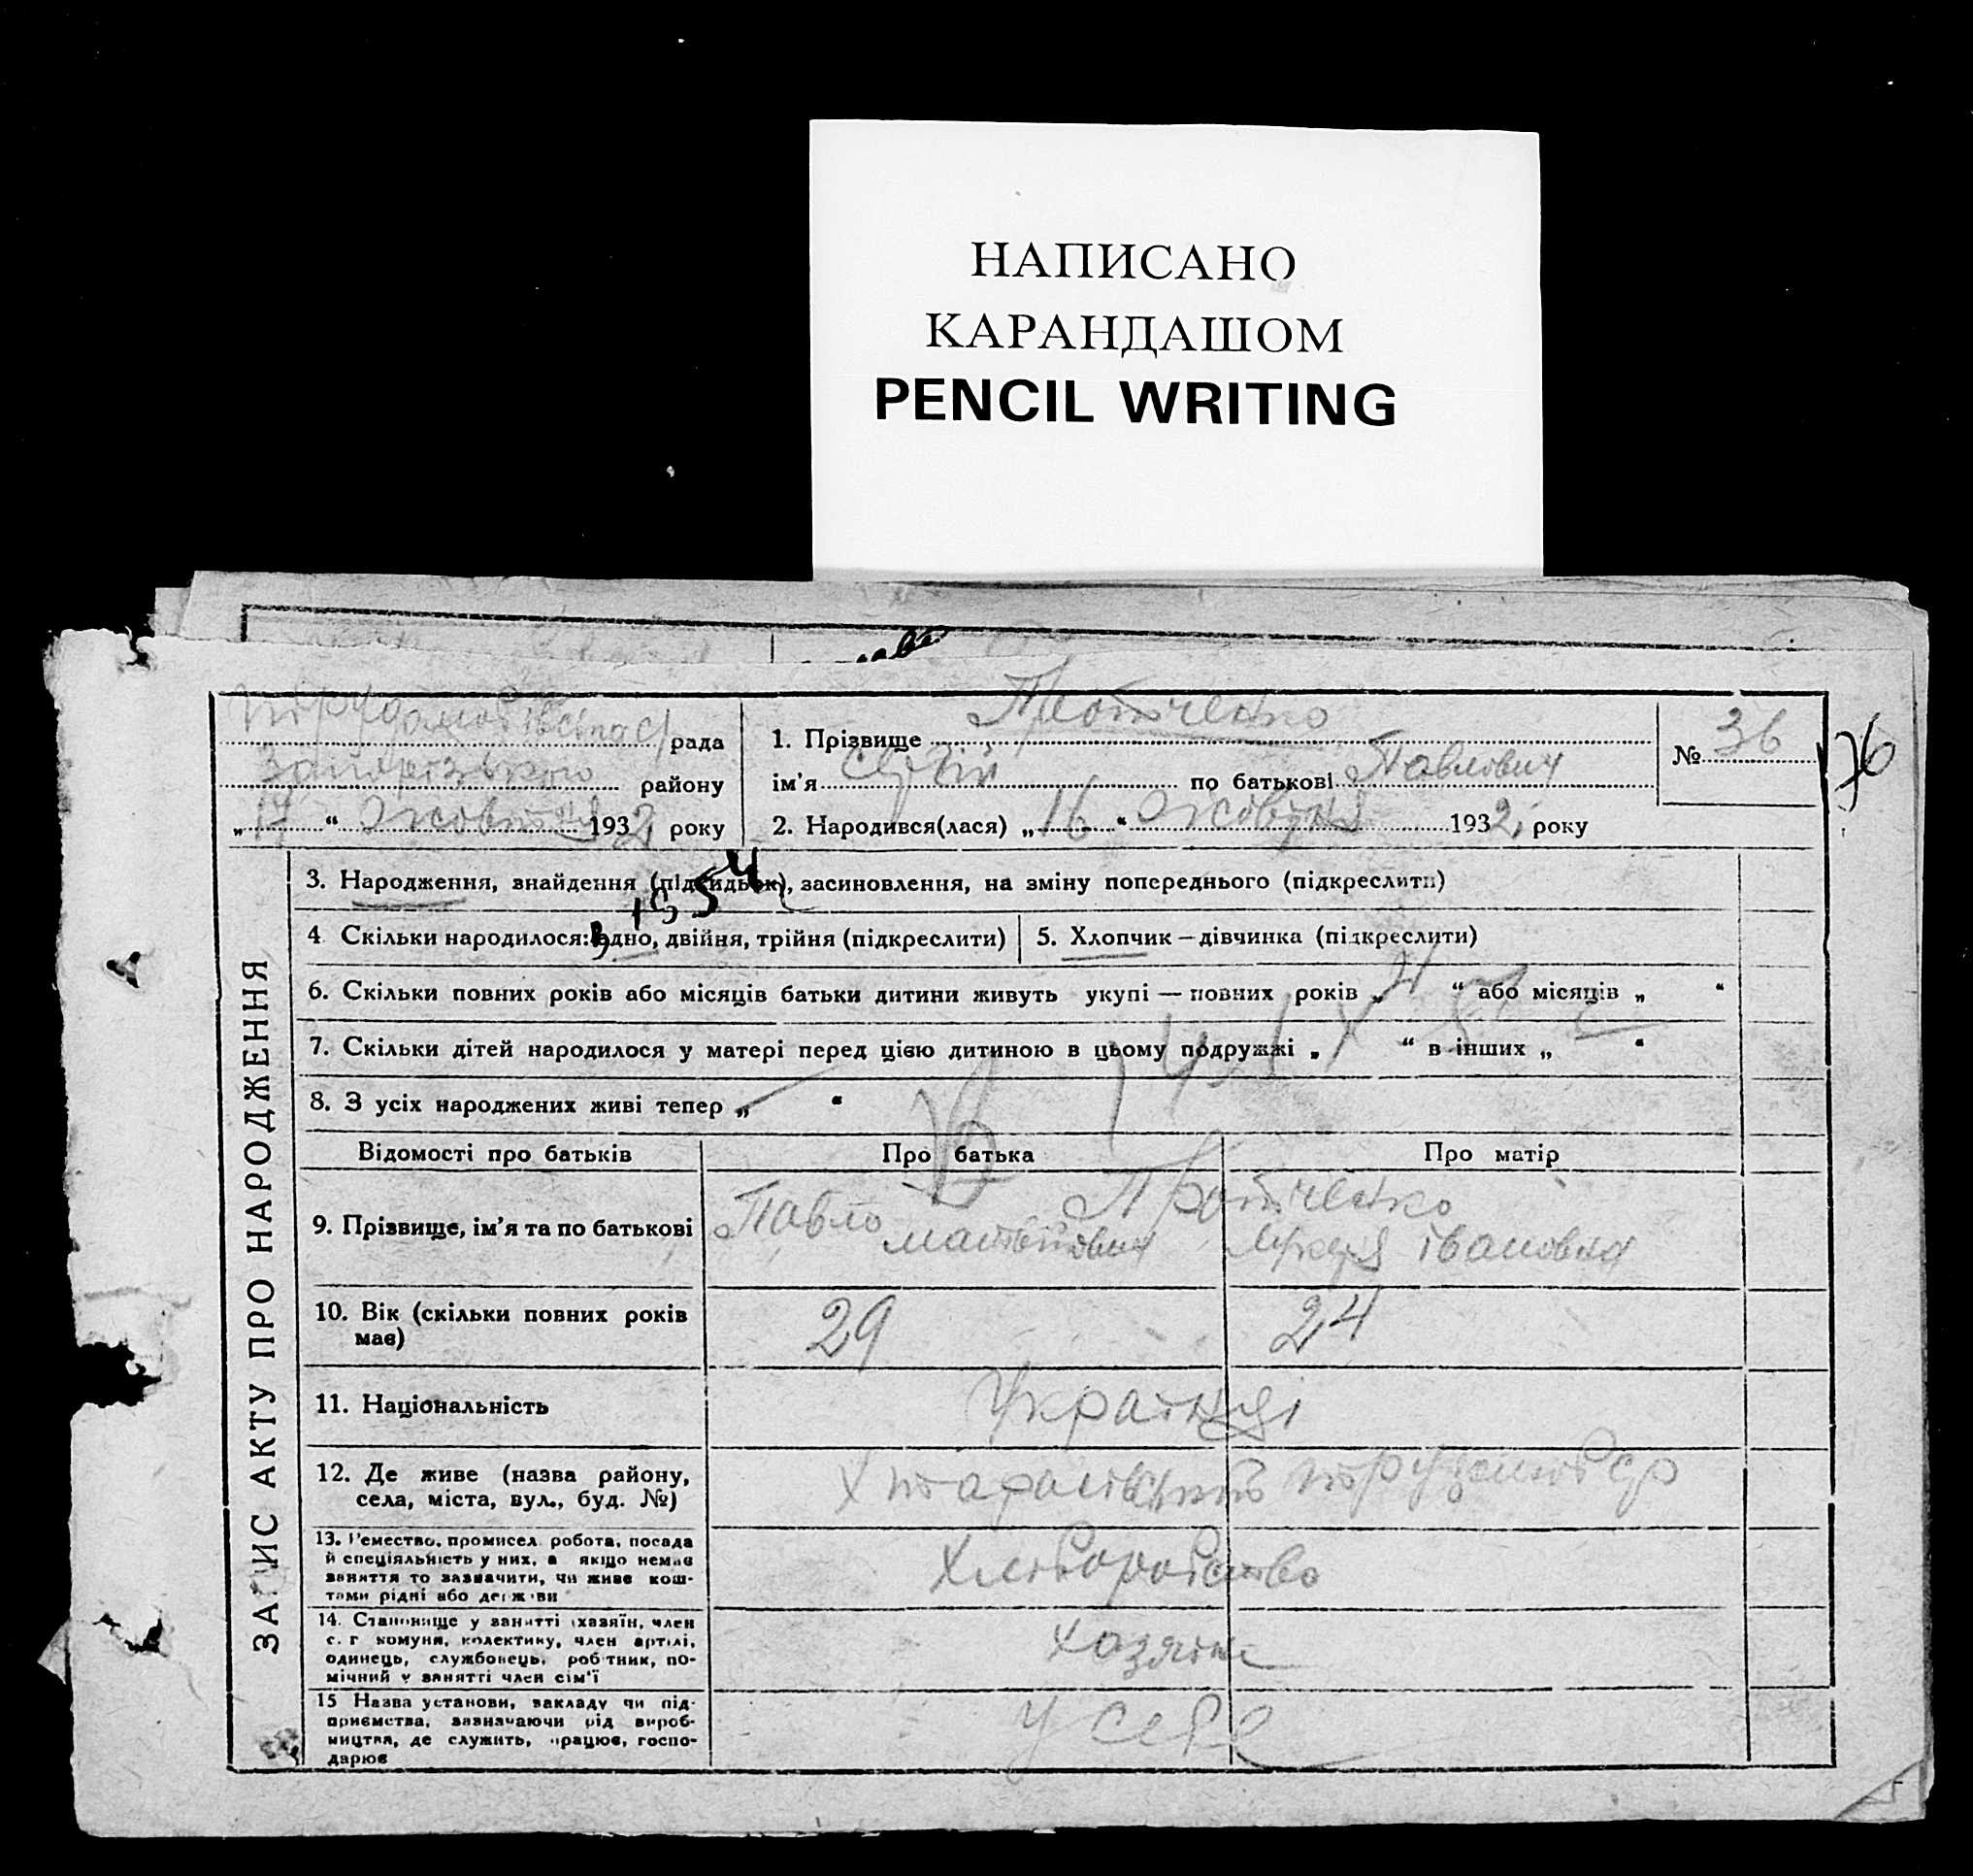 НАПИСАНО
КАРАНДАШОМ
PENCIL WRITING
рада
1. Прізвище
№ 36
76
Запорізького району
ім'я Сергій по батькові Павлович
„17“ Жовтня 1932 року
2. Народився(лася) „16“ Жовтня 1932 року
ЗАПИС АКТУ ПРО НАРОДЖЕННЯ
3. Народження, знайдення (підкидьок), засиновлення, на зміну попереднього (підкреслити)
4 Скільки народилося: одно, двійня, трійня (підкреслити)
5. Хлопчик – дівчинка (підкреслити)
6. Скільки повних років або місяців батьки дитини живуть укупі — повних років „4“ або місяців „ “
7. Скільки дітей народилося у матері перед цією дитиною в цьому подружжі „ “ в інших „ “
8. З усіх народжених живі тепер „ “
Відомості про батьків
Про батька
Про матір
9. Прізвище, ім'я та по батькові
Павло Матвійович
Івановна
10. Вік (скільки повних років має)
29
24
11. Національність
Українці
12. Де живе (назва району,
села, міста, вул., буд. №)
13. Ремество, промисел робота, посада
й спеціяльність у них, а якщо немає
заняття то зазначити, чи живе кош-
тами рідні або держави
Хліборобство
14. Становище у занятті (хазяїн, член
с. г комуни, колективу, член артілі,
одинець, службовець, робітник, по-
мічний у занятті член сім'ї
Хозяїн
15 Назва установи, закладу чи під-
приємства, зазначаючи рід вироб-
ництва, де служить, працює, госпо-
дарює
У себе